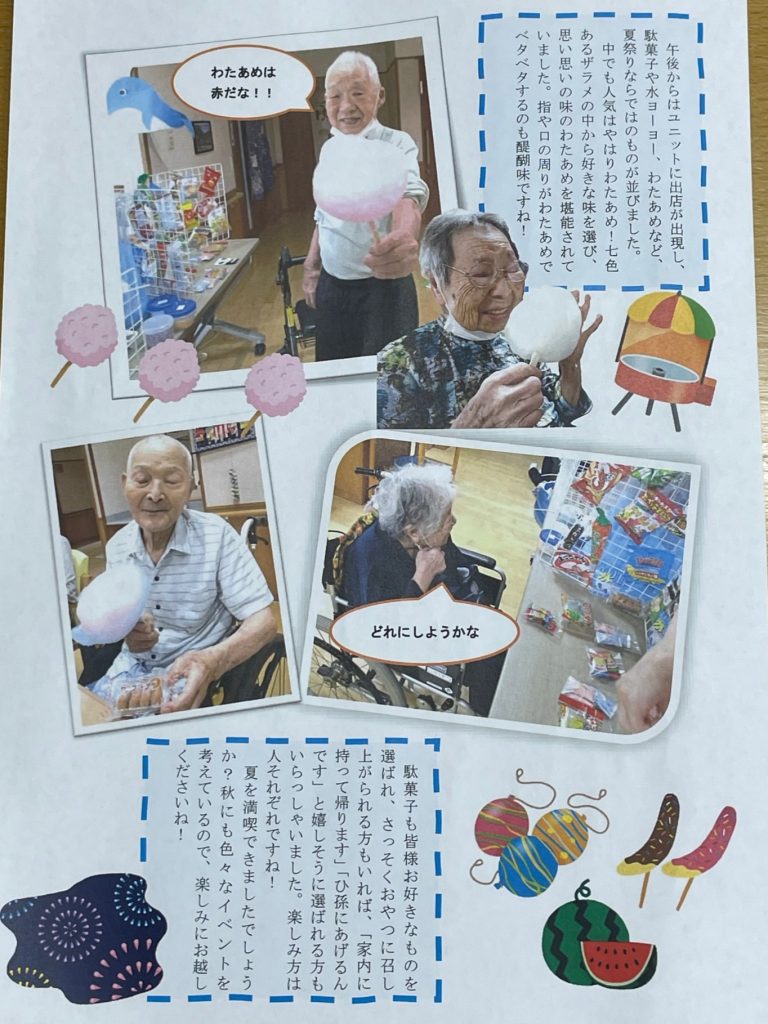 午後からはユニットに出店が出現し、
駄菓子や水ヨーヨー、わたあめなど、
夏祭りならではのものが並びました。
中でも人気はやはりわたあめ！七色
あるザラメの中から好きな味を選び、
思い思いの味のわたあめを堪能されて
いました。指や口の周りがわたあめで
ベタベタするのも醍醐味ですね！
わたあめは
赤だな！！
どれにしようかな
駄菓子も皆様お好きなものを
選ばれ、さっそくおやつに召し
上がられる方もいれば、「家内に
持って帰ります」「ひ孫にあげるん
です」と嬉しそうに選ばれる方も
いらっしゃいました。楽しみ方は
人それぞれですね！
夏を満喫できましたでしょう
か？秋にも色々なイベントを
考えているので、楽しみにお越し
くださいね！